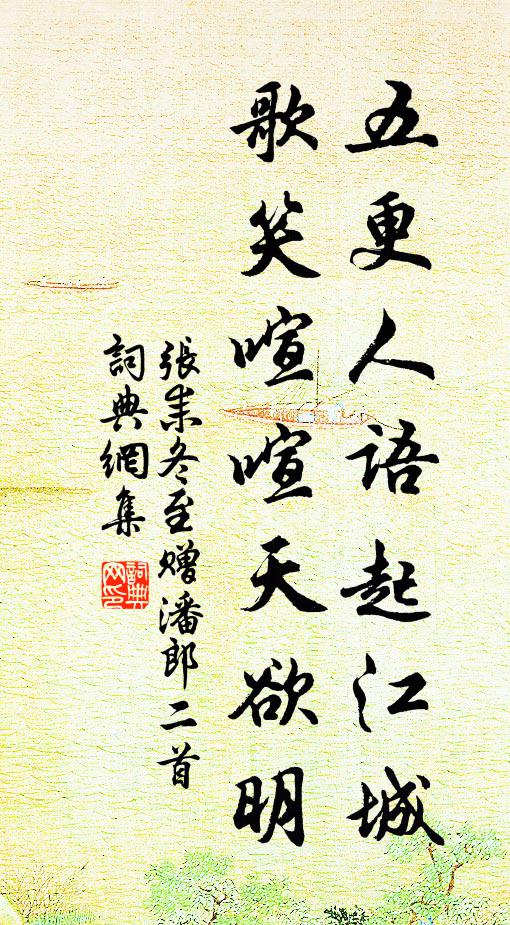 五更人語起江城
歌笑喧喧天欲明
張耒冬至贈潘郎二首
詞典網集
詞典網印